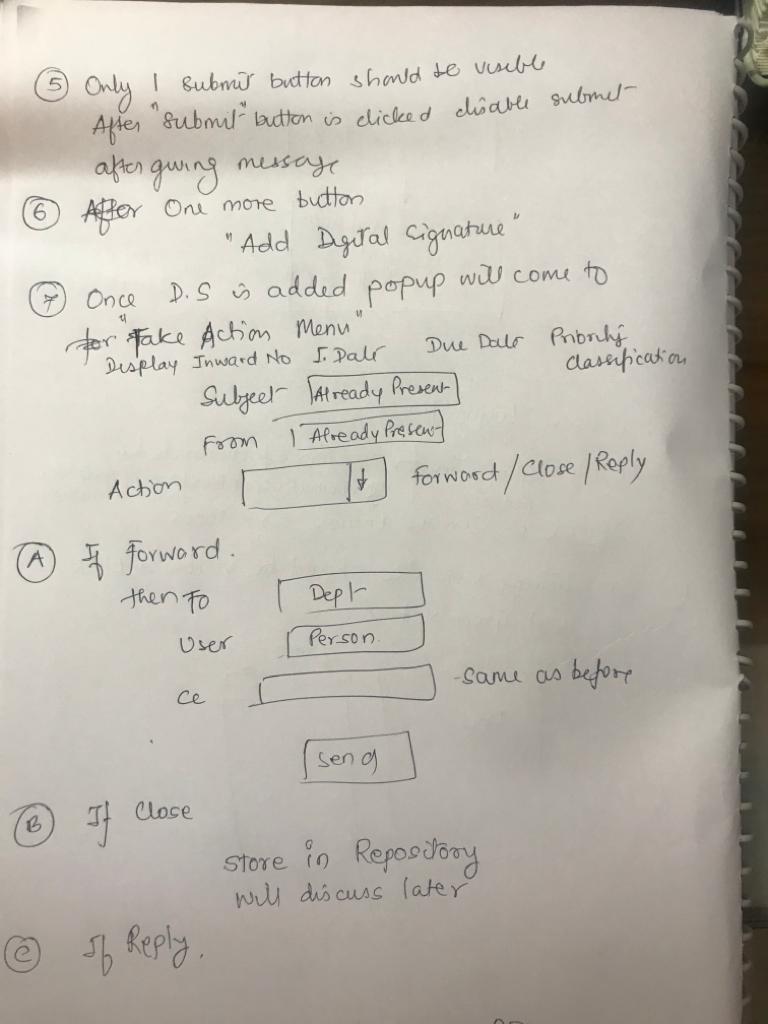 5 Only 1 submit button should be visible
After "submit" button is clicked disable submit
after giving message
6 After One more button
"Add Digital Signature"
7 Once D.S is added popup will come to
for "Take Action Menu"
Display Inward No I. Date Due Date Priority
classification
Subject Already Present
From Already Present
Action Forward / Close / Reply
A If Forward.
then To Dept
User Person
cc - same as before
Send
B If Close
store in Repository
will discuss later
C If Reply.